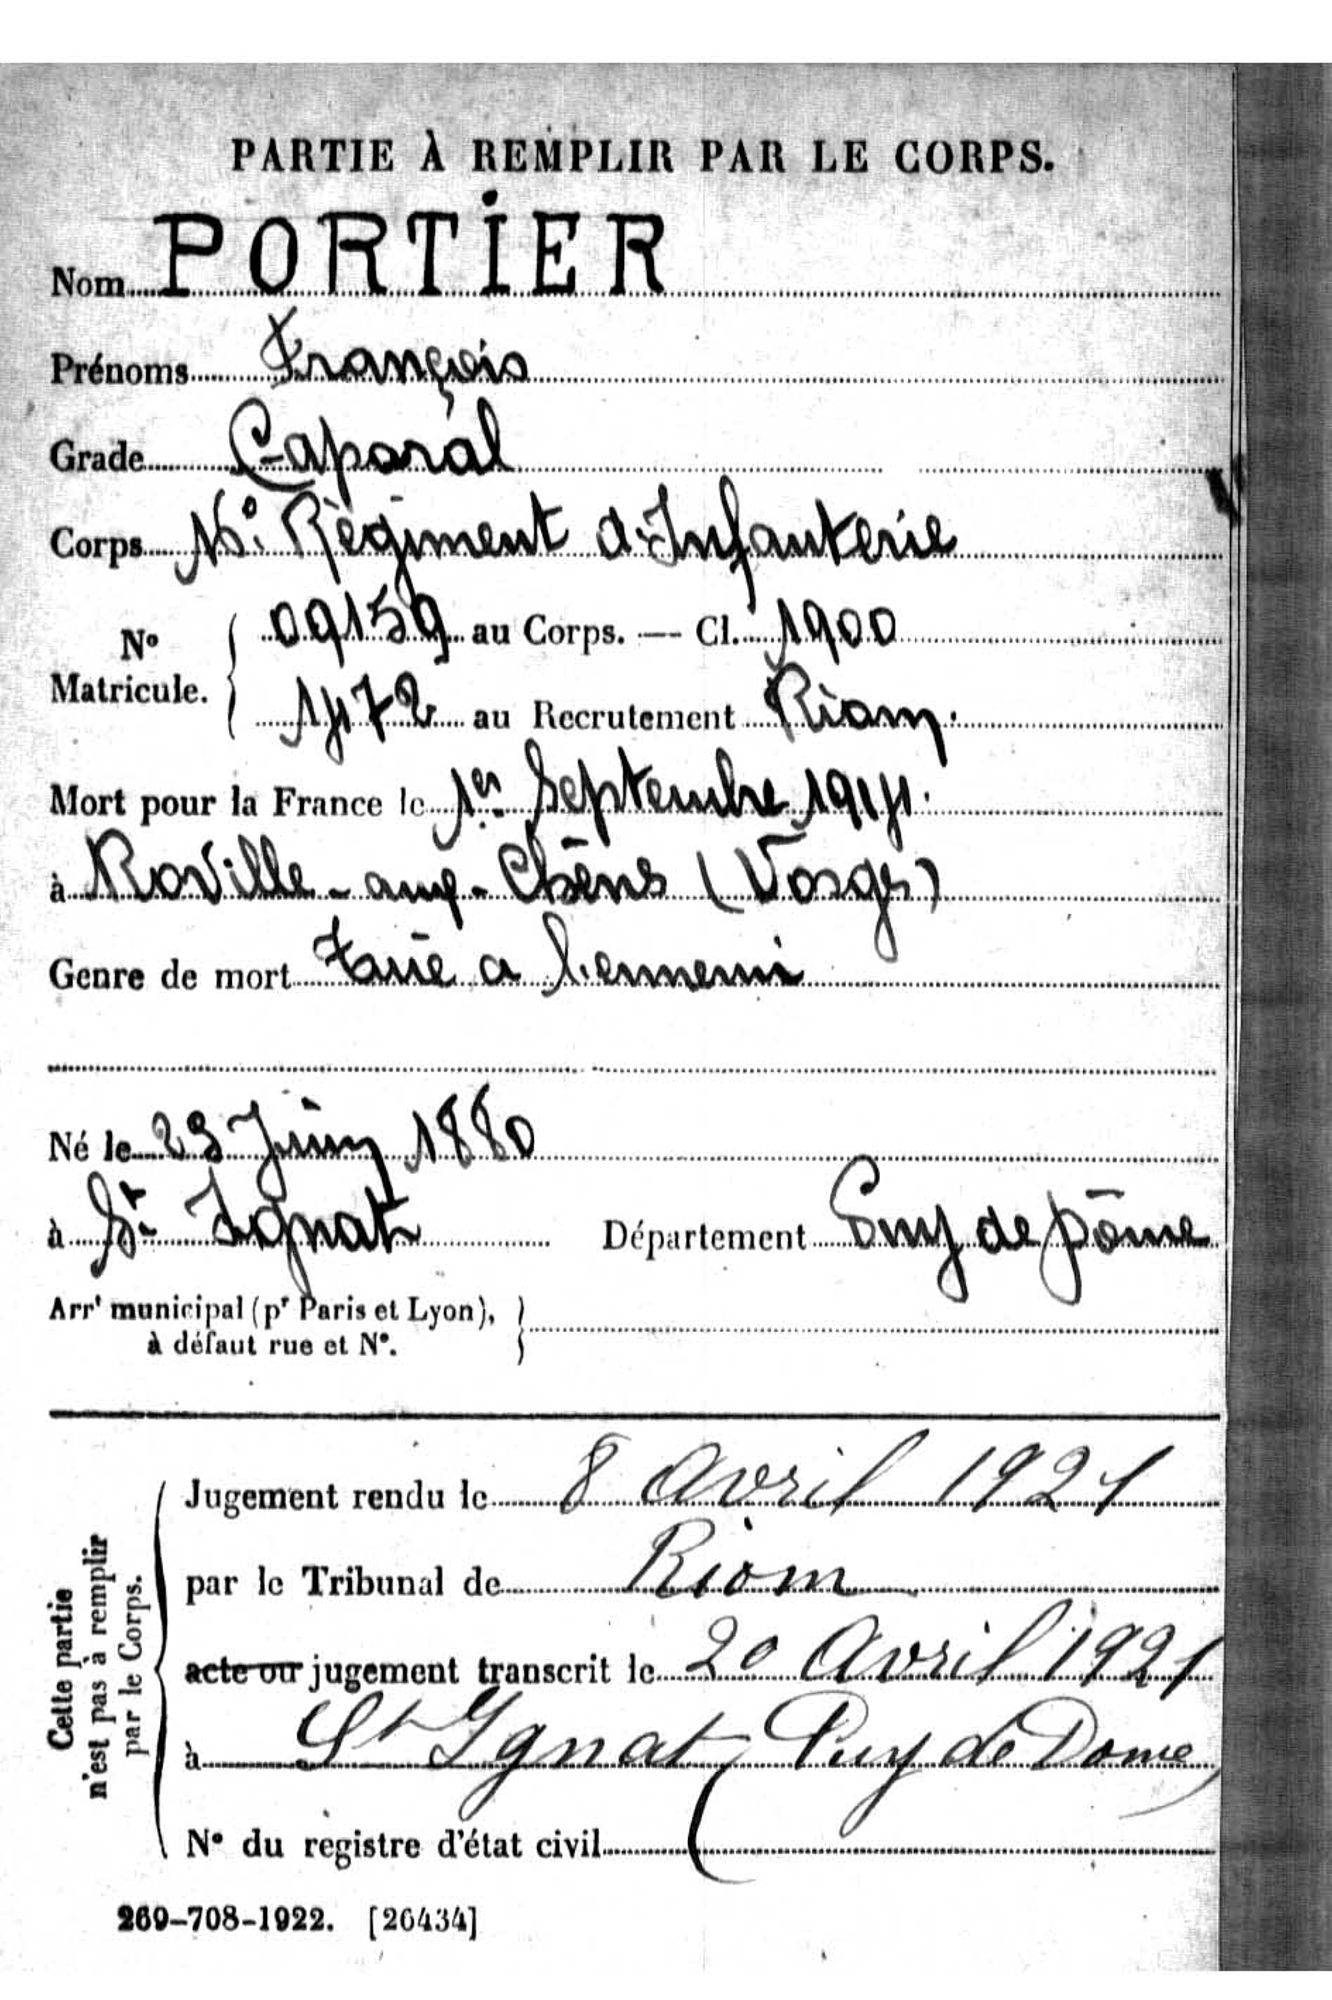 PARTIE À REMPLIR PAR LE CORPS.
Nom PORTIER
Prénoms François
Grade Caporal
Corps 16e Régiment d'Infanterie
No Matricule. { 09159 au Corps. — Cl. 1900
1472 au Recrutement Riom.
Mort pour la France le 1er Septembre 1914.
à Roville-aux-Chênes (Vosges)
Genre de mort tué a l'ennemi
Né le 23 Juin 1880
à St Ignat Département Puy de Dôme
Arrt municipal (pr Paris et Lyon), }
à défaut rue et No.
Cette partie
n'est pas à remplir
par le Corps.
Jugement rendu le 8 Avril 1921
par le Tribunal de Riom
acte ou jugement transcrit le 20 Avril 1921
à St Ignat (Puy de Dome)
No du registre d'état civil
269-708-1922. [26434]